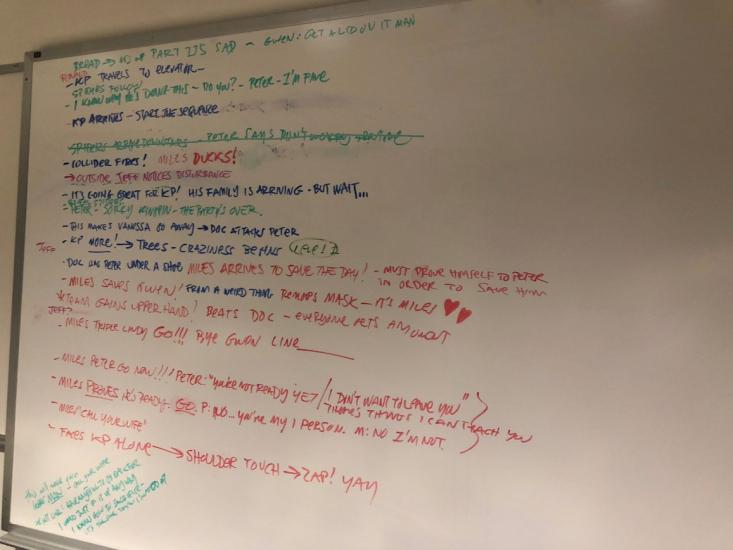 BREAD → PART 2 IS SAD - GWEN: GET A LOUV IT MAN
- KP TRAVELS TO ELEVATOR -
SPIDERS FOLLOW
- I KNOW WHY HE'S DOING THIS - DO YOU? - PETER - I'M FINE
- KP ARRIVES - START THE SEQUENCE
SPIDERS ARRIVE DOWNSTAIRS - PETER SAYS DON'T
- COLLIDER FIRES! MILES DUCKS!
→ OUTSIDE JEFF NOTICES DISTURBANCE
- IT'S GOING GREAT FOR KP! HIS FAMILY IS ARRIVING - BUT WAIT...
- PETER - SORRY KINGPIN - THE PARTY'S OVER.
- THIS MAKES VANISSA GO AWAY → DOC ATTACKS PETER
- KP MORE! → TREES - CRAZINESS BEGINS
JEFF
- DOC HAS PETER UNDER A SHOE MILES ARRIVES TO SAVE THE DAY! - MUST PROVE HIMSELF TO PETER
IN ORDER TO SAVE HIM
- MILES SAVES GWEN! FROM A WEIRD THING REMOVES MASK - IT'S MILES ♥♥
* TEAM GAINS UPPER HAND! BEATS DOC - EVERYONE GETS A MOMENT
JEFF?
- MILES TRIPLE LINDY GO!!! BYE GWEN LINE
- MILES PETER GO NOW!!! PETER: "YOU'RE NOT READY YET / I DON'T WANT TO LEAVE YOU"
THERE'S THINGS I CAN TEACH YOU
- MILES PROVES HE'S READY. GO. P: NO... YOU'RE MY 1 PERSON. M: NO I'M NOT.
- MILES "CALL YOUR WIFE"
- FACES KP ALONE → SHOULDER TOUCH → ZAP! YAY